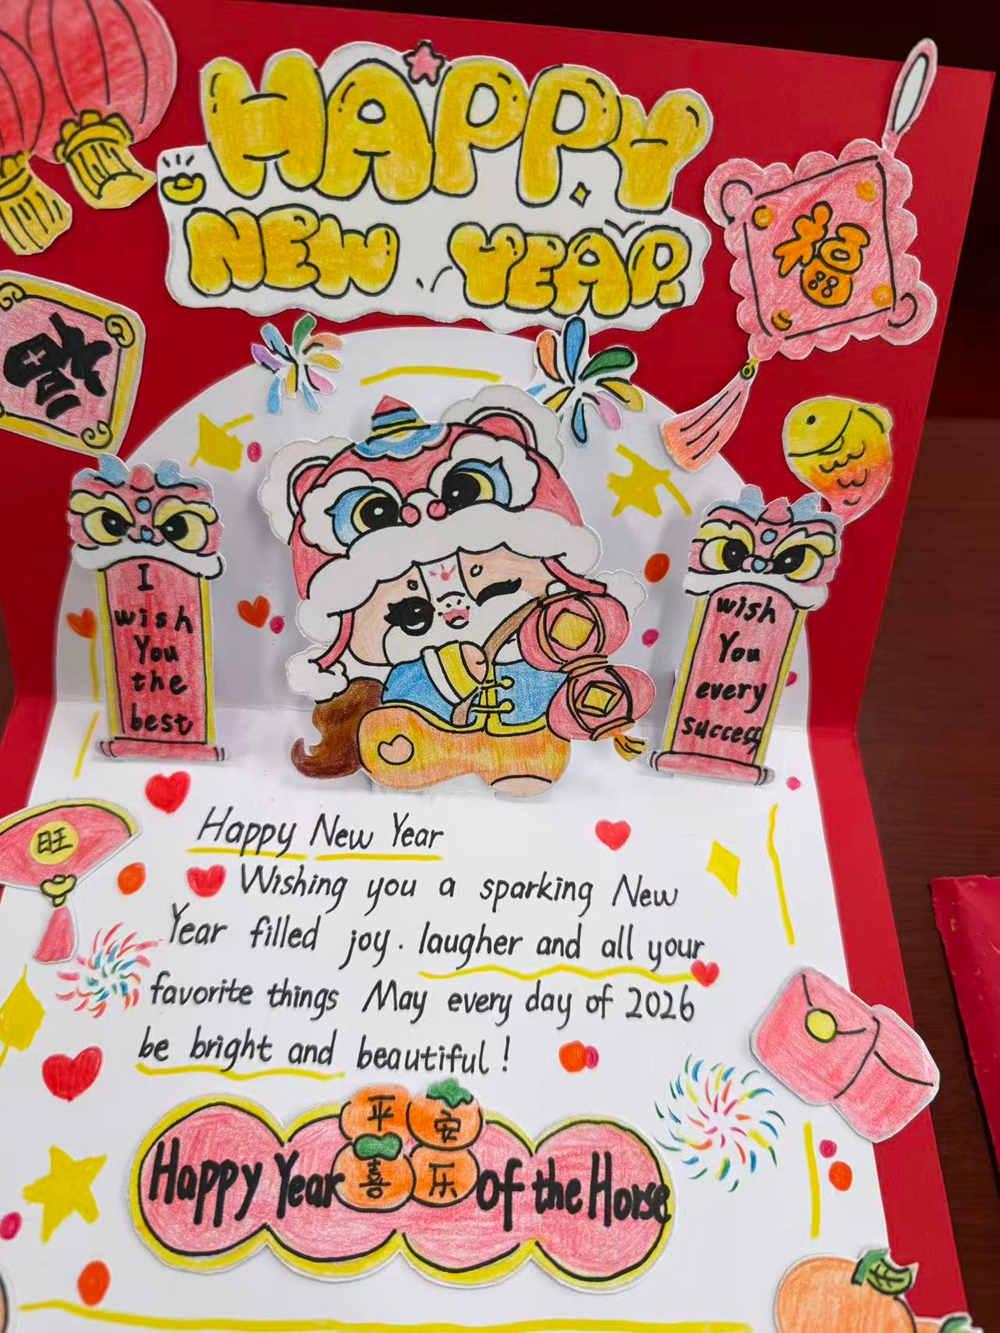 HAPPY
NEW YEAR
福
福
I
wish
You
the
best
wish
You
every
success
旺
Happy New Year
Wishing you a sparking New
Year filled joy. laugher and all your
favorite things May every day of 2026
be bright and beautiful!
平安
喜乐
Happy Year of the Horse